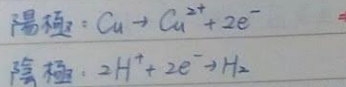 陽極：Cu → Cu²⁺ + 2e⁻
陰極：2H⁺ + 2e⁻ → H₂